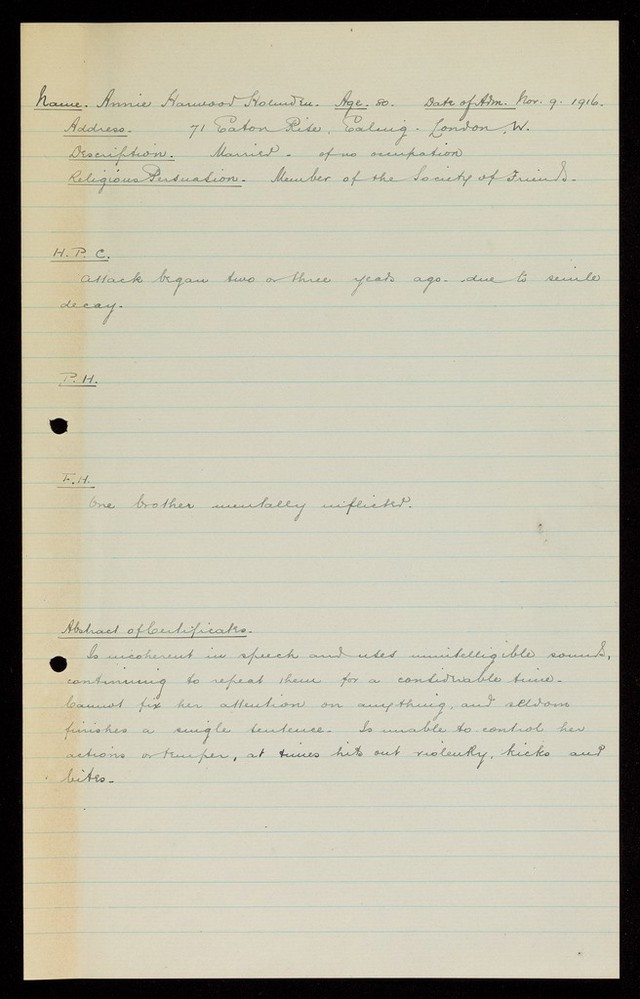 Name. Annie Harwood Holmden. Age. 80. Date of Adm. Nov. 9. 1916.
Address. 71 Eaton Rise, Ealing. London, W.
Description. Married - of no occupation
Religious Persuasion. Member of the Society of Friends.
H. P. C.
Attack began two or three years ago. due to senile
decay.
P. H.
F. H.
One brother mentally inflicted.
Abstract of Certificates.
Is incoherent in speech and utes unintelligible sounds,
continuing to repeat them for a considerable time.
Cannot fix her attention on anything, and seldom
finishes a single sentence. Is unable to control her
actions or temper, at times hits out violently, kicks and
bites.